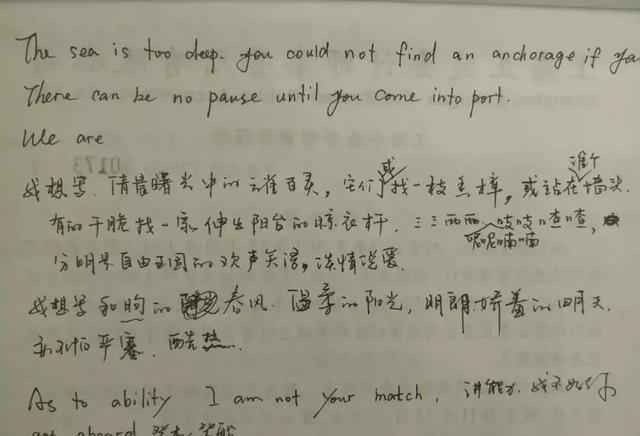 The sea is too deep. you could not find an anchorage if you
There can be no pause until you come into port.
We are
我想写、清晨曙光中的云雀百灵，它们或找一枝高梓，或站在谁个墙头.
有的干脆找一家伸出阳台的晾衣杆. 三三两两、吱吱喳喳，呢呢喃喃
分明是自由王国的欢声笑语，谈情说爱.
我想写和煦的春风. 温柔的阳光, 明朗娇羞的四月天.
不怕严寒、酷热.
As to ability I am not your match. 讲能力，我不如你
get aboard